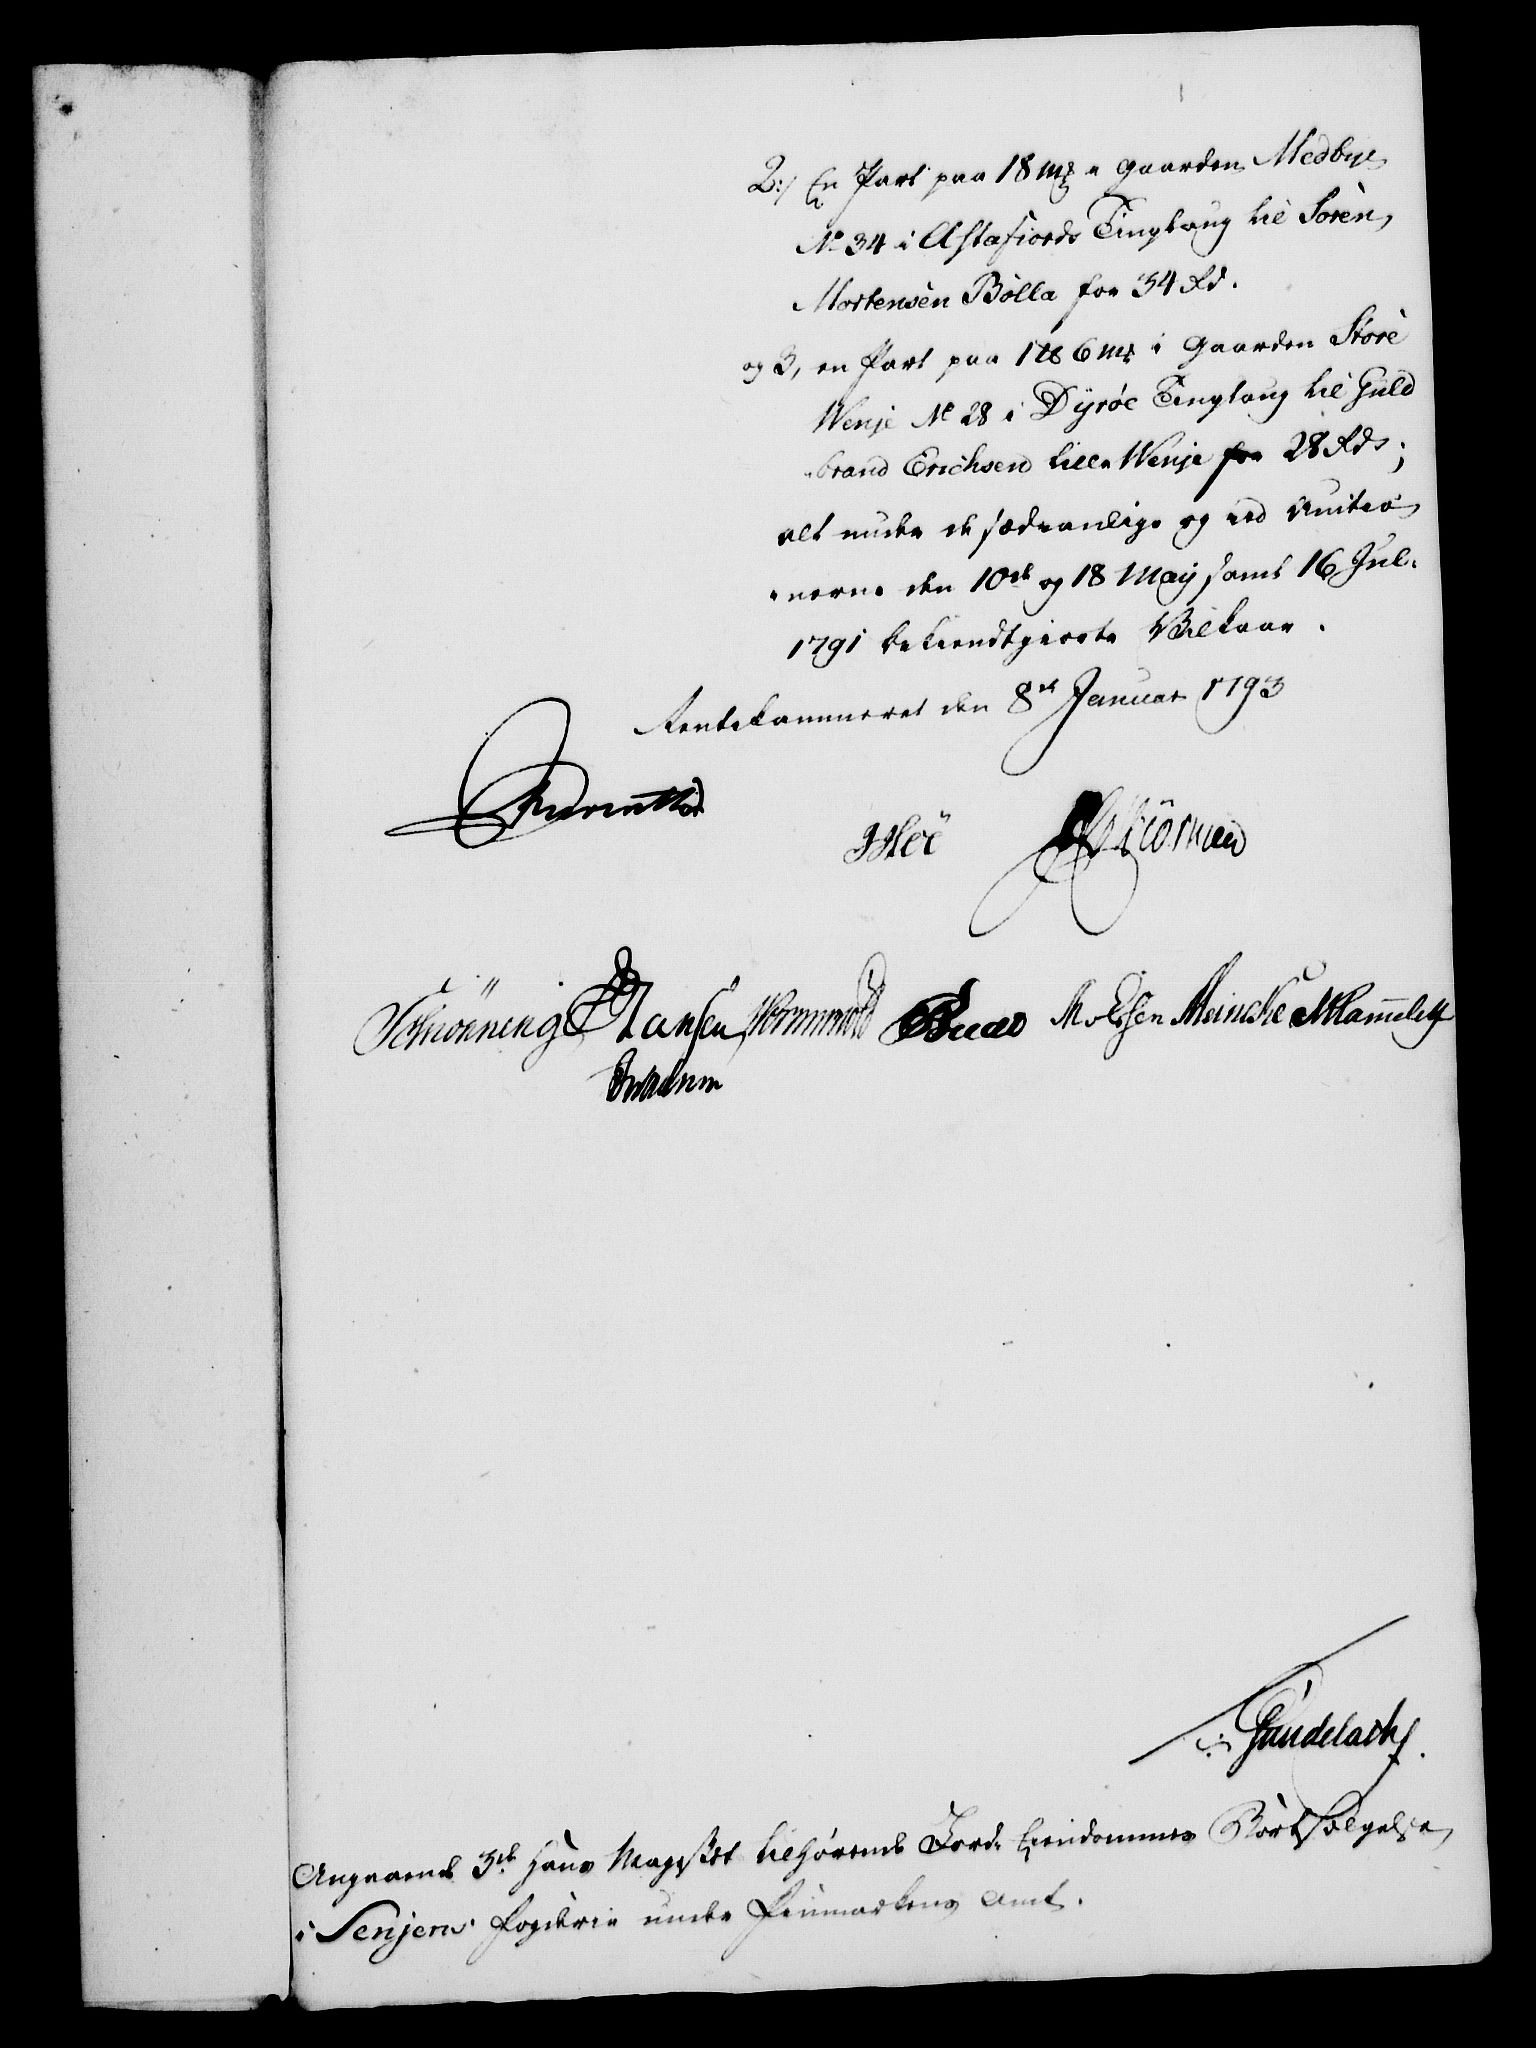 2:/ En Part paa 18 mk i Gaarden Medbye
No 34 i Astafiords Tinglaug til Sören
Mortensen Bölla for 34 Rd.
og 3, en Part paa 1 ℔ 6 mk i Gaarden Store
Wenje No 28 i Dyröe Tinglaug til Guld
brand Erichsen lille Wenje for 28 Rds;
alt under de sædvanlige og ved Auctio
nerne den 10de og 18 May samt 16 Jul.
1791 bekiendtgiorte Vilkaar.
Rentekammeret den 8de Januar 1793
Schwönning Hansen Wormwold Buch Molssen Meincke Hammeleff
Gundelach
Angaaende 3de Hans Mayestet tilhörende Jorde Eiendommes Bortsælgelse
i Senjens Fogderie under Finmarkens Amt.